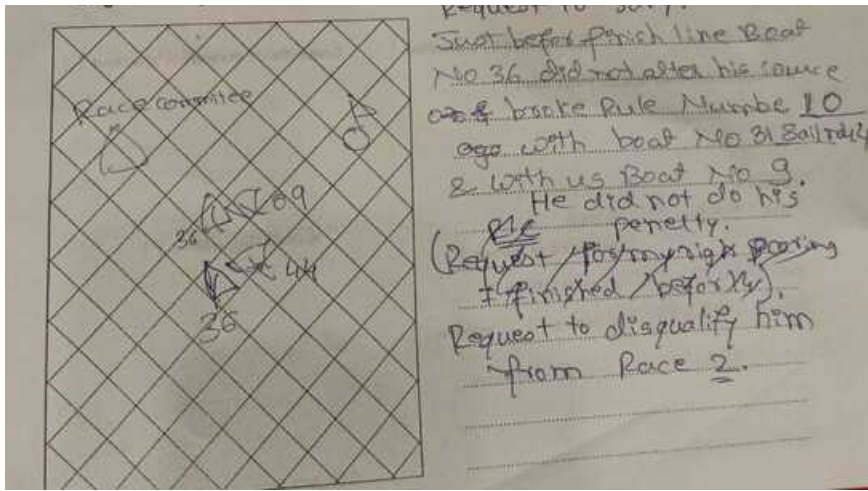 Race committee
09
36
44
36
Request to Jury.
Just befor finish line Boat
No 36 did not alter his cource
broke Rule Numbe 10
with boat No 31 Sail
& with us Boat No 9.
He did not do his
penelty.
(Request for my righ
I finished befor
Request to disqualify him
from Race 2.